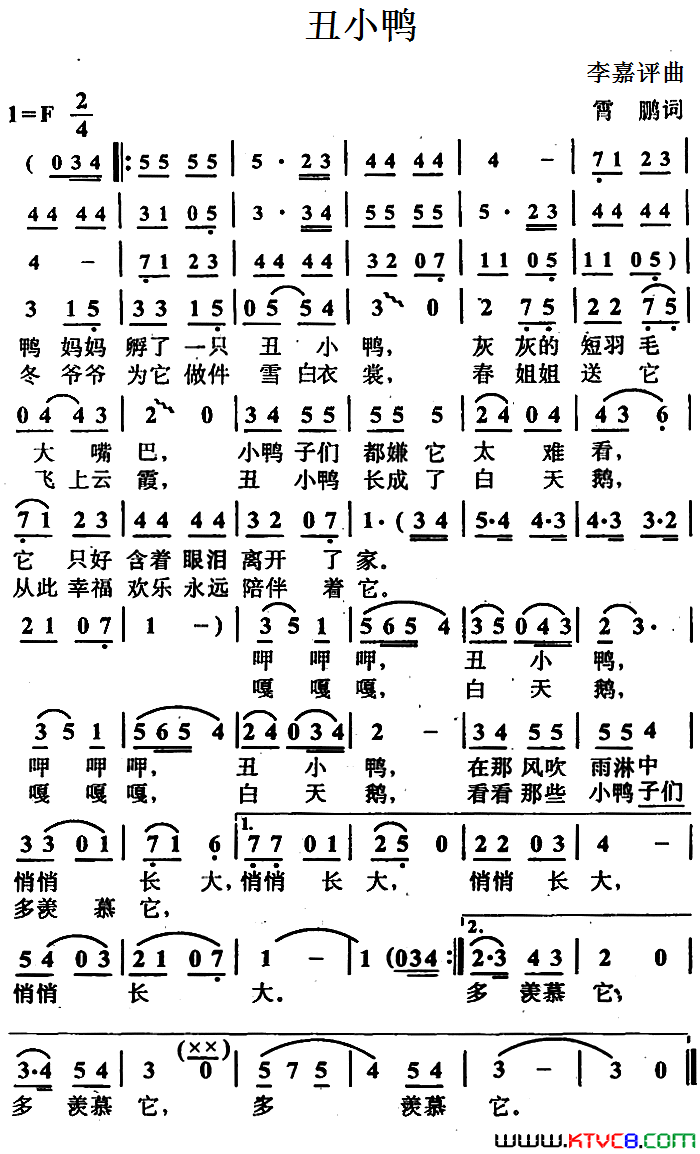 丑小鸭
李嘉评曲
1=F 2/4
霄 鹏词
( 034 ‖: 55 55 | 5 · 23 | 44 44 | 4 - | 71 23 |
44 44 | 31 05 | 3 · 34 | 55 55 | 5 · 23 | 44 44 |
4 - | 71 23 | 44 44 | 32 07 | 11 05 | 11 05 )
3 15 | 33 15 | 05 54 | 3 0 | 2 75 | 22 75 |
鸭 妈妈 孵了 一只 丑 小 鸭, 灰 灰的 短羽 毛
冬 爷爷 为它 做件 雪 白衣 裳, 春 姐姐 送 它
04 43 | 2 0 | 34 55 | 55 5 | 24 04 | 43 6 |
大 嘴 巴, 小鸭 子们 都嫌 它 太 难 看,
飞 上云 霞, 丑 小鸭 长成 了 白 天 鹅,
71 23 | 44 44 | 32 07 | 1·( 34 | 5·4 4·3 | 4·3 3·2 |
它 只好 含着 眼泪 离开 了 家.
从此 幸福 欢乐 永远 陪伴 着 它.
21 07 | 1 - ) | 35 1 | 565 4 | 35 043 | 2 3· |
呷 呷 呷, 丑 小 鸭,
嘎 嘎 嘎, 白 天 鹅,
35 1 | 565 4 | 24 034 | 2 - | 34 55 | 55 4 |
呷 呷 呷, 丑 小 鸭, 在那 风吹 雨淋 中
嘎 嘎 嘎, 白 天 鹅, 看看 那些 小鸭 子们
33 01 | 71 6 | 1. 77 01 | 25 0 | 22 03 | 4 - |
悄悄 长 大, 悄悄 长 大, 悄悄 长 大,
多羡 慕 它,
54 03 | 21 07 | 1 - | 1 (034 :‖ 2. 2·3 43 | 2 0 |
悄悄 长 大. 多 羡慕 它,
3·4 54 | 3 (××) 0 | 5 7 5 | 4 54 | 3 - | 3 0 ‖
多 羡慕 它, 多 羡慕 它.
www.KTVC8.com